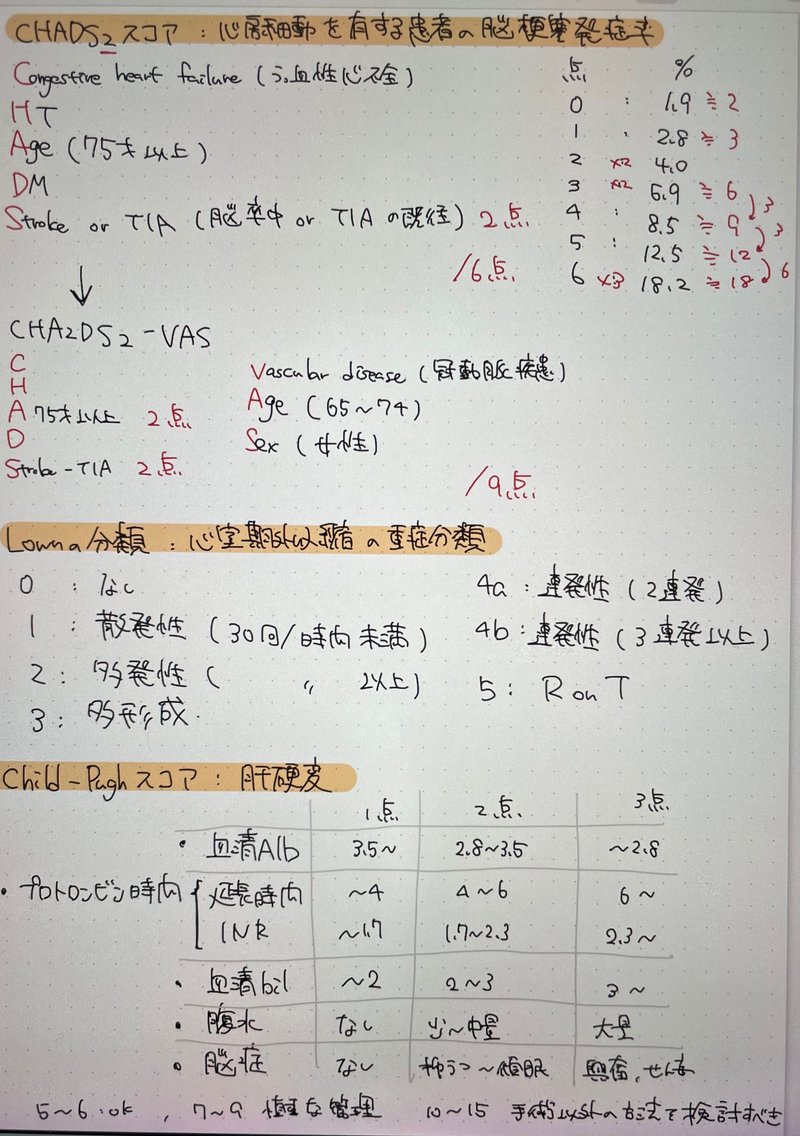 CHADS2スコア：心房細動を有する患者の脳梗塞発症率
Congestive heart failure (うっ血性心不全)
HT
Age (75才以上)
DM
Stroke or TIA (脳卒中 or TIAの既往) 2点
/6点
点 %
0 : 1.9 ≒ 2
1 : 2.8 ≒ 3
2 ×2 4.0
3 ×2 5.9 ≒ 6
4 : 8.5 ≒ 9 3
5 : 12.5 ≒ 12 3
6 ×3 18.2 ≒ 18 6
↓
CHA2DS2-VAS
C
H
A 75才以上 2点
D
Stroke-TIA 2点
Vascular disease (冠動脈疾患)
Age (65~74)
Sex (女性)
/9点
Lownの分類：心室期外収縮の重症分類
0 : なし
1 : 散発性 (30回/時間未満)
2 : 多発性 ( 〃 以上)
3 : 多形成
4a : 連発性 (2連発)
4b : 連発性 (3連発以上)
5 : R on T
Child-Pughスコア：肝硬変
1点 2点 3点
・血清Alb 3.5~ 2.8~3.5 ~2.8
・プロトロンビン時間 { 延長時間 ~4 4~6 6~
INR ~1.7 1.7~2.3 2.3~
・血清bil ~2 2~3 3~
・腹水 なし 少~中量 大量
・脳症 なし 抑うつ~傾眠 興奮,せん妄
5~6 ok , 7~9 慎重な管理 10~15 手術以外の方法で検討すべき